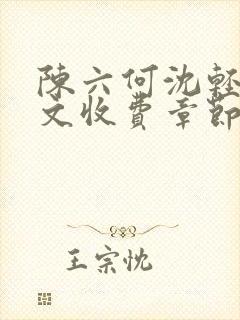 陳六何沈輕
文收費章節
王宗忱